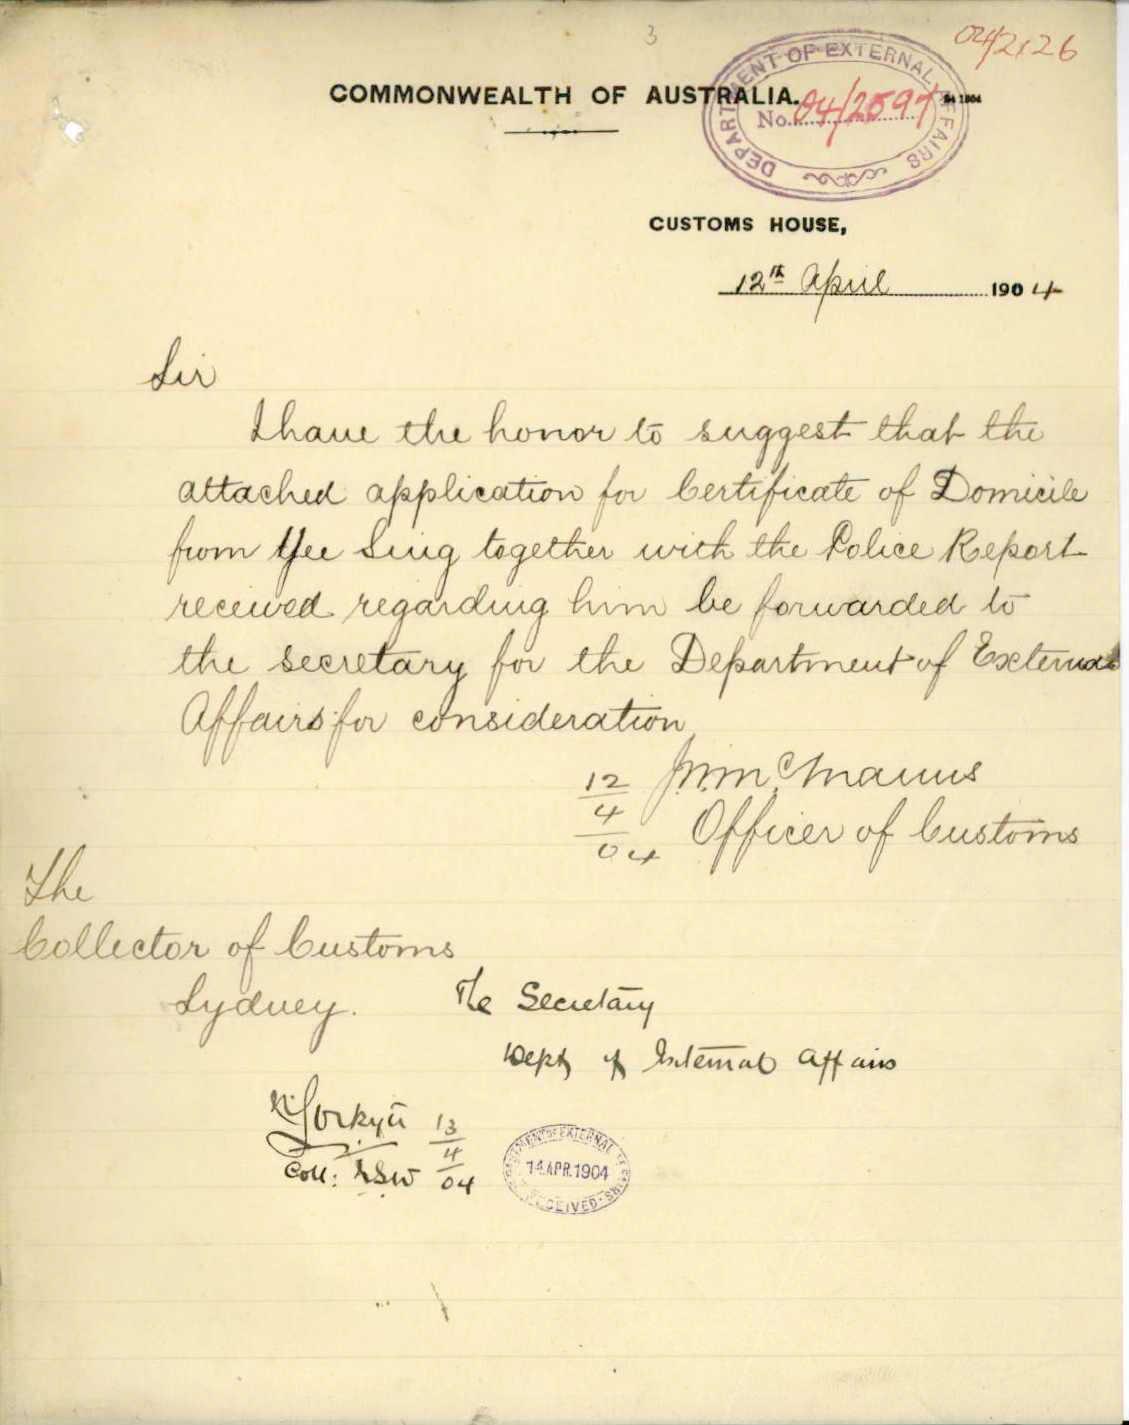 3
04/2126
COMMONWEALTH OF AUSTRALIA.
DEPARTMENT OF EXTERNAL AFFAIRS
No. 04/2597
CUSTOMS HOUSE,
12th April 1904
Sir
I have the honor to suggest that the
attached application for Certificate of Domicile
from Yee Sing together with the Police Report
received regarding him be forwarded to
the Secretary for the Department of External
Affairs for consideration
12/4/04
Officer of Customs
The
Collector of Customs
Sydney.
The Secretary
Dept of External Affairs
13/4/04
Coll: NSW
DEPARTMENT OF EXTERNAL AFFAIRS
14 APR. 1904
RECEIVED